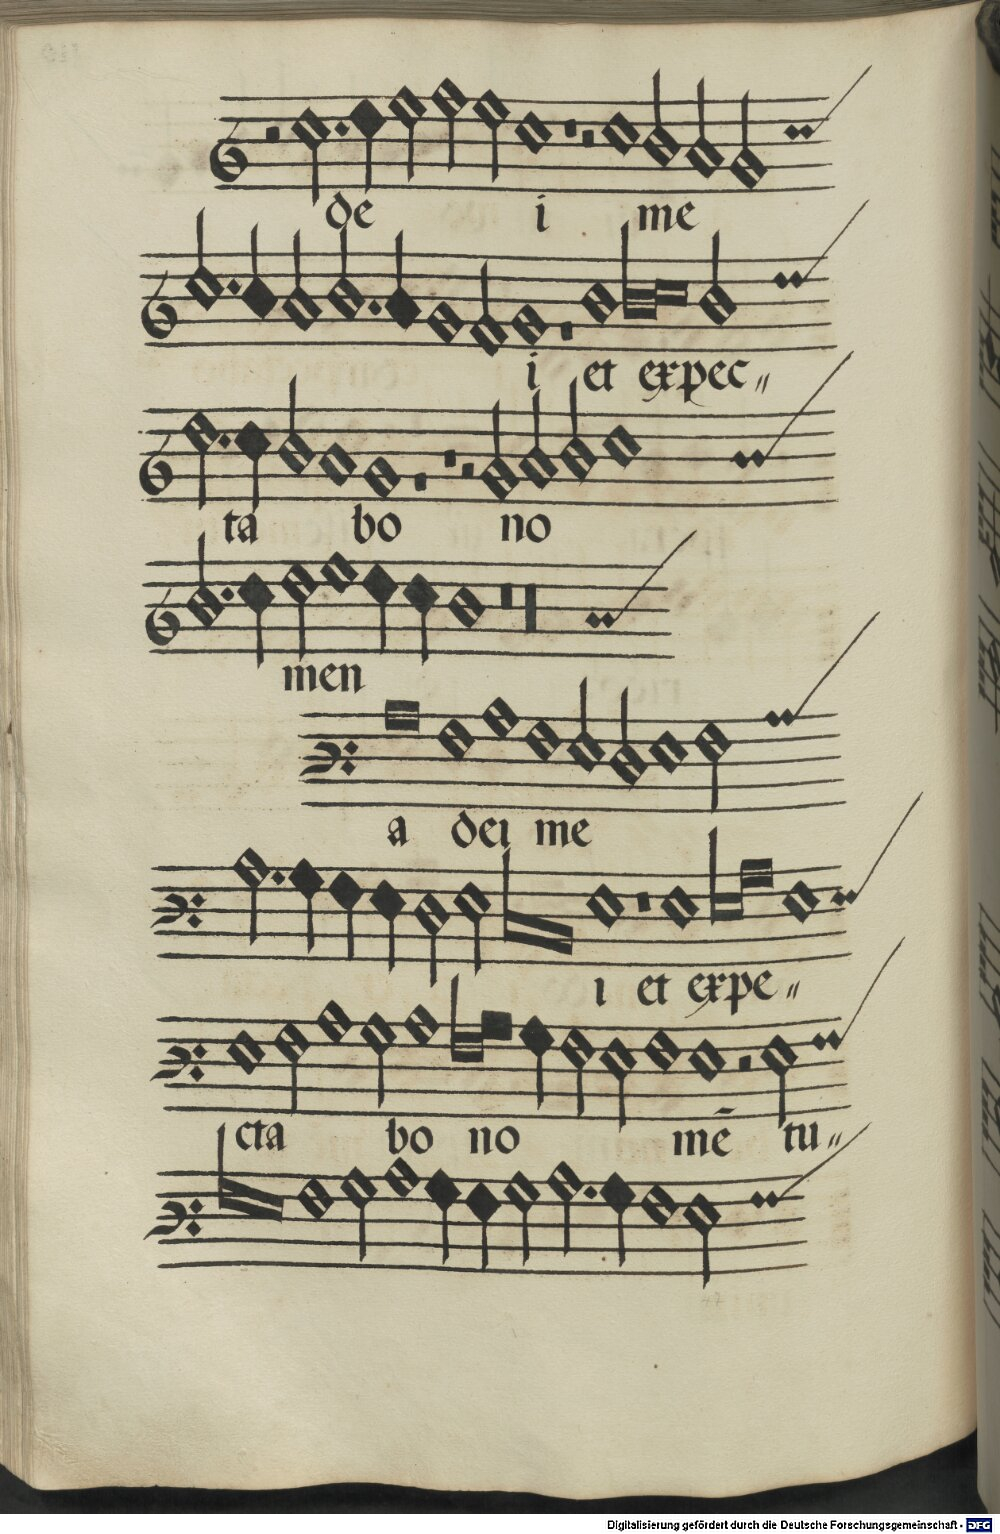 de i me
i et expec〃
ta bo no
men
a dei me
i et expe〃
cta bo no mē tu〃
Digitalisierung gefördert durch die Deutsche Forschungsgemeinschaft - DFG